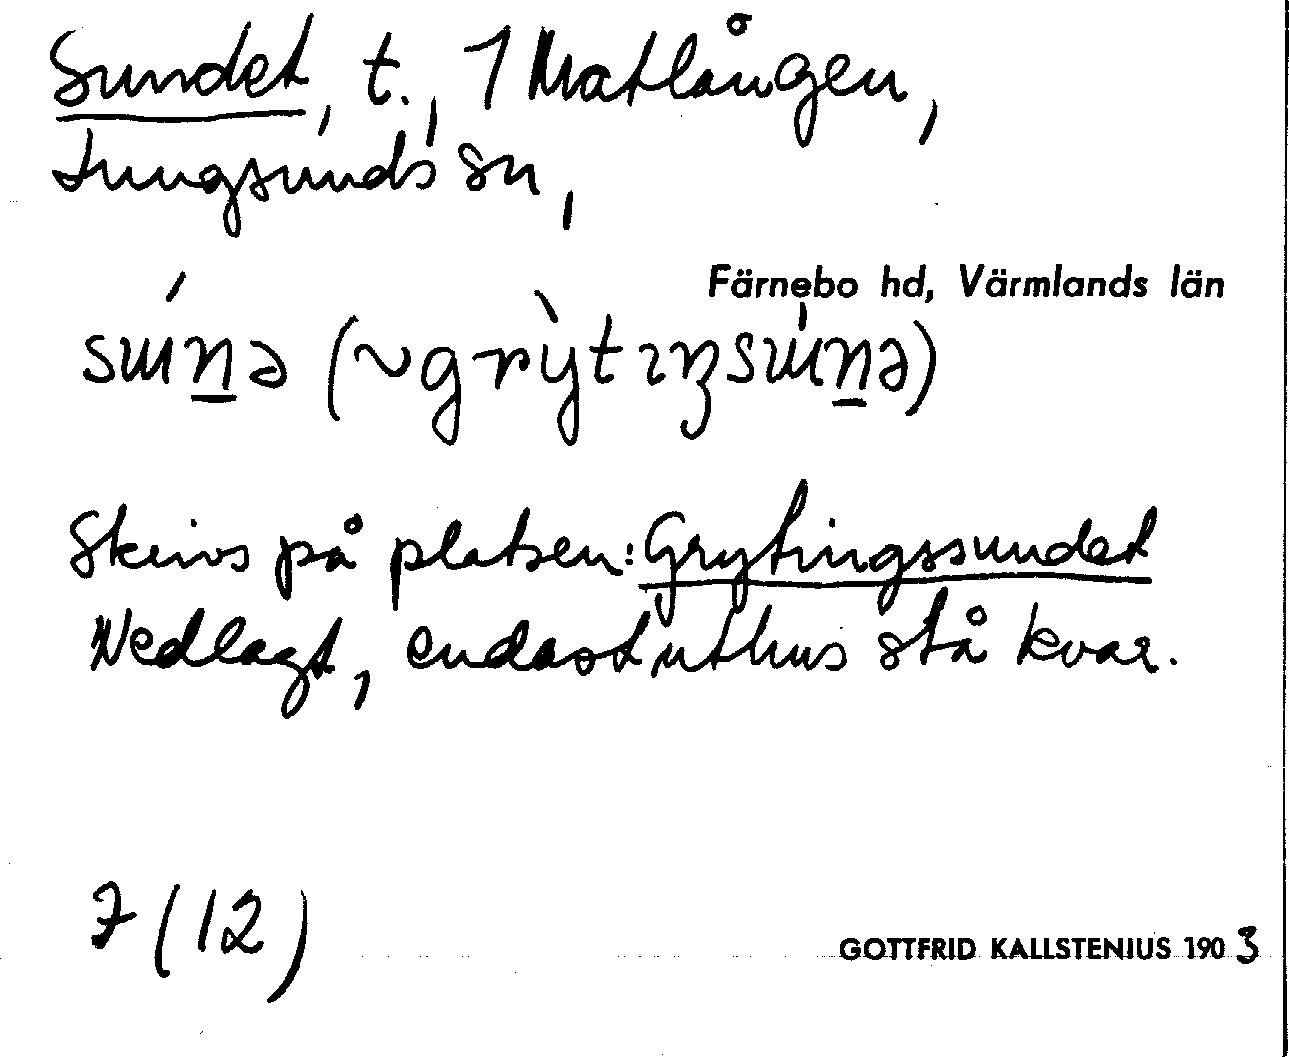 Sundet, t., 1 Matlången,
Lungsunds sn,
Färnebo hd, Värmlands län
sɯ́n̠ə (~grỳtıŋsɯ́n̠ə)
Skrivs på platsen: Grytingssundet
Nedlagt, endast uthus stå kvar.
7 (12)
GOTTFRID KALLSTENIUS 1903